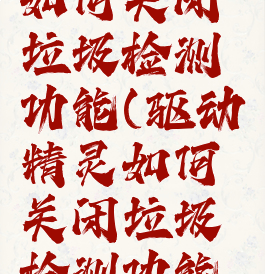 如何关闭
垃圾检测
功能(驱动
精灵如何
关闭垃圾
检测功能